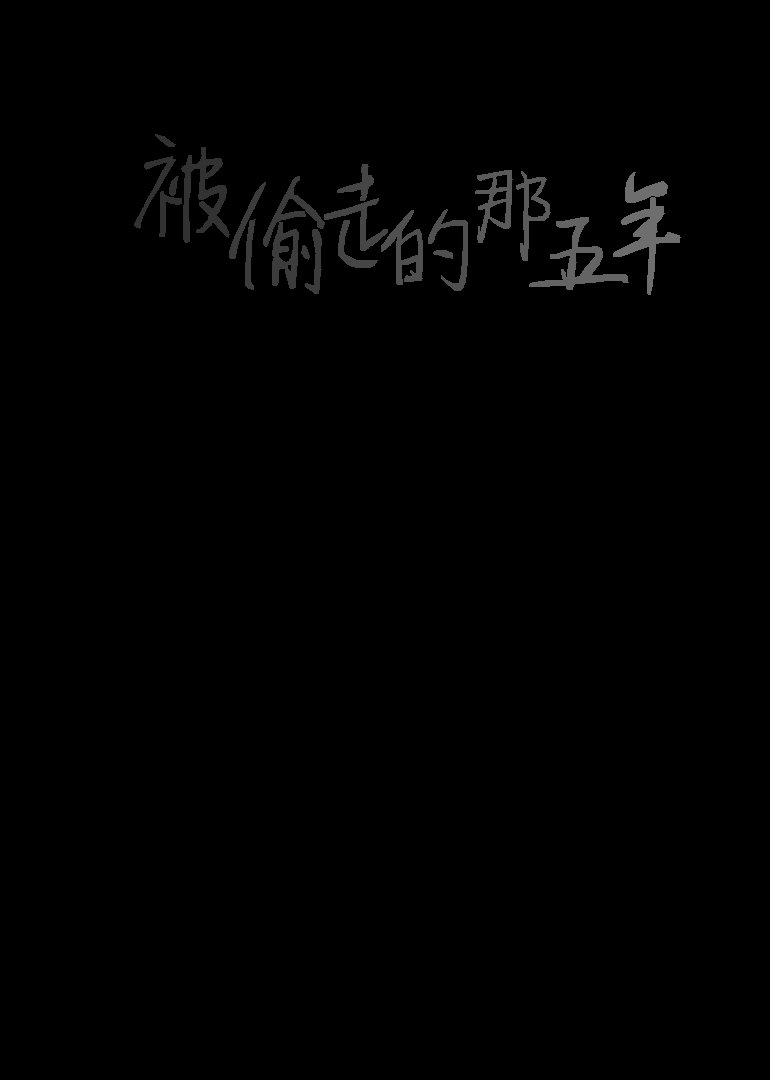 被偷走的那五年